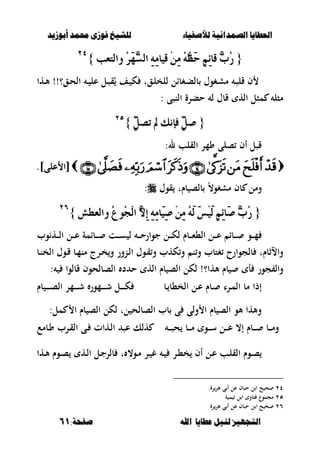 العطايا الصمدانية للأصفياء
للشيخ فوزى محمد أبوزيد
{ رُبَّ قَائِمٍ حَظُّهُ مِنْ قِيَامِهِ السَّهَرُ والتعب } ٢٤
لأن قلبه مشغول بالضغائن للخلق، فكيف يُقبل عليه الحق؟!! هذا
مثله كمثل الذى قال له حضرة النبى :
{ صَلِّ فإنك لم تصلِّ } ٢٥
قبل أن تصلى طهر القلب لله:
﴿ قَدْ أَفْلَحَ مَن تَزَكَّىٰ ۝ وَذَكَرَ اسْمَ رَبِّهِ فَصَلَّىٰ ۝ ﴾ [الأعلى].
ومن كان مشغولاً بالصيام، يقول ﷺ:
{ رُبَّ صَائِمٍ لَيْسَ لَهُ مِنْ صِيَامِهِ إِلاَّ الْجُوعُ والعطش } ٢٦
فهو صائم عن الطعام لكن جوارحه ليست صائمة عن الذنوب
والآثام، فالجوارح تغتاب وتنم وتكذب وتقول الزور ويخرج منها قول الخنا
والفجور فأى صيام هذا؟! لكن الصيام الذى حدده الصالحون قالوا فيه:
إذا ما المرء صام عن الخطايا فكل شهوره شهر الصيام
وهذا هو الصيام الأولى فى باب الصالحين، لكن الصيام الأكمل:
وما صام إلا عن سوى ما يحبه كذلك عبد الذات فى القرب طامع
يصوم القلب عن أن يخطر فيه غير مولاه، فالرجل الذى يصوم هذا
٢٤ صحيح ابن حبان عن أبي هريرة.
٢٥ مجموع فتاوى ابن تيمية
٢٦ صحيح ابن حبان عن أبي هريرة
التجهيز لنيل عطايا الله
صفحة: ٦١